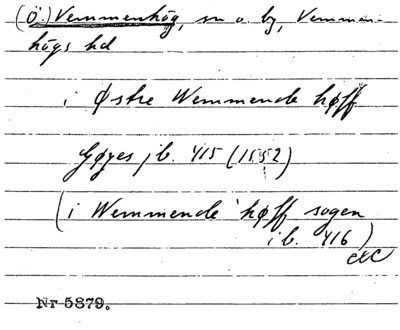 (Ö.) Vemmenhög, sn o. by, Vemmen-
högs hd
i Østre Wemmende høff
Gøyes jb. 415 (1552)
(i Wemmende høff sogen
ib. 416)
etc
Nr 5879.